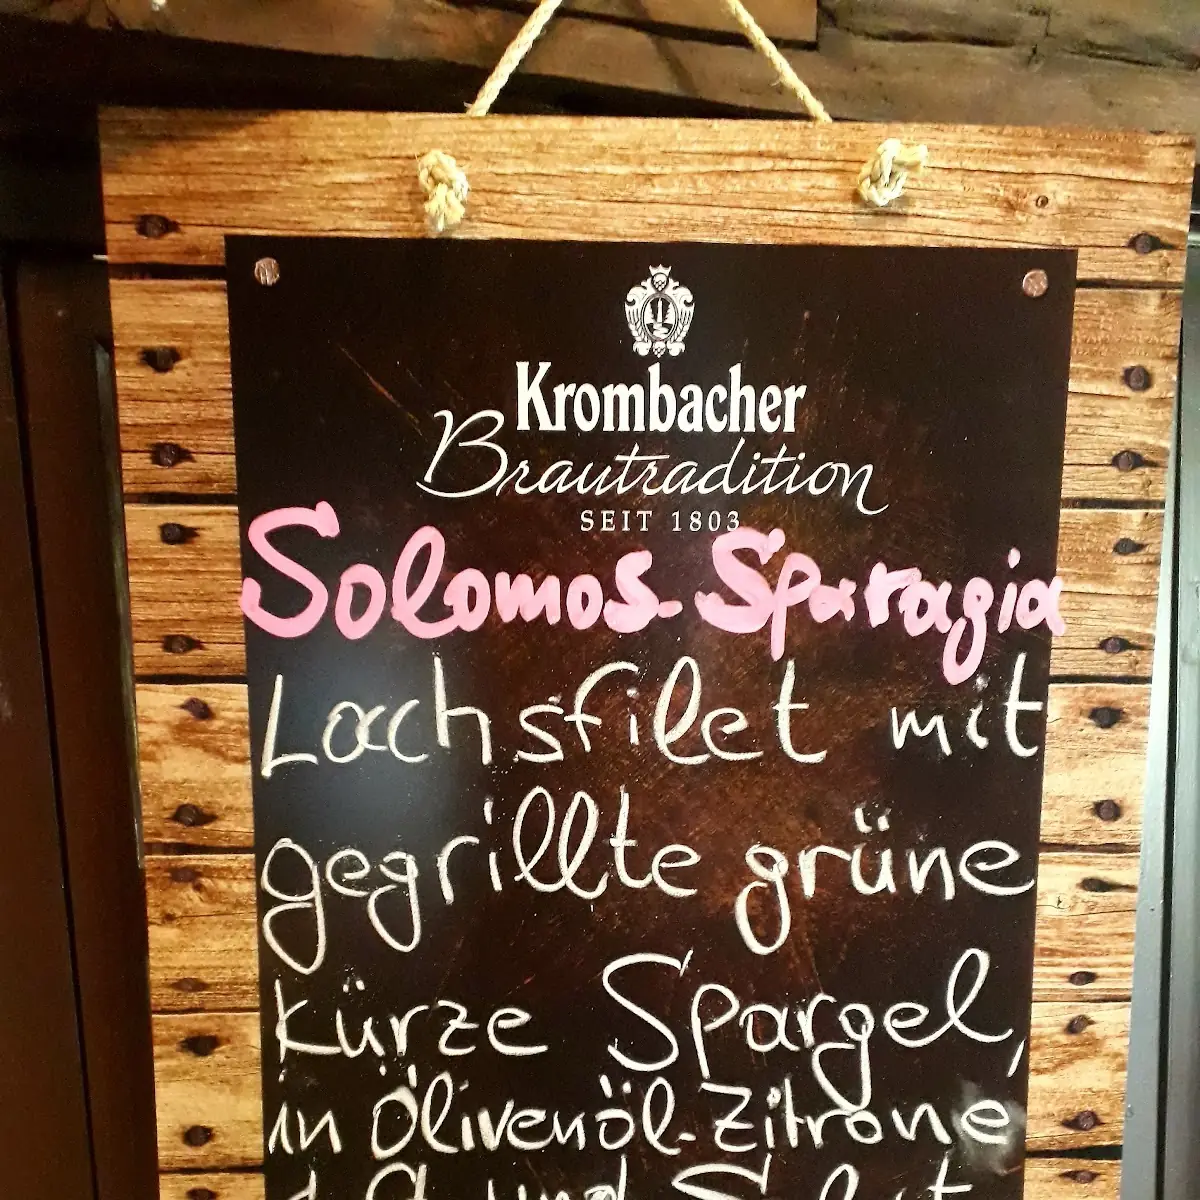 Krombacher
Brautradition
SEIT 1803
Solomos-Sparagia
Lachsfilet mit
gegrillte grüne
kürze Spargel,
in Ölivenöl-Zitrone
und